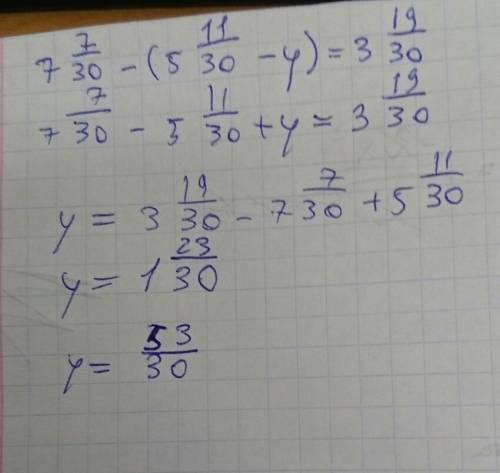 7 7/30 - (5 11/30 - y) = 3 19/30
7 7/30 - 5 11/30 + y = 3 19/30
y = 3 19/30 - 7 7/30 + 5 11/30
y = 1 23/30
y = 53/30